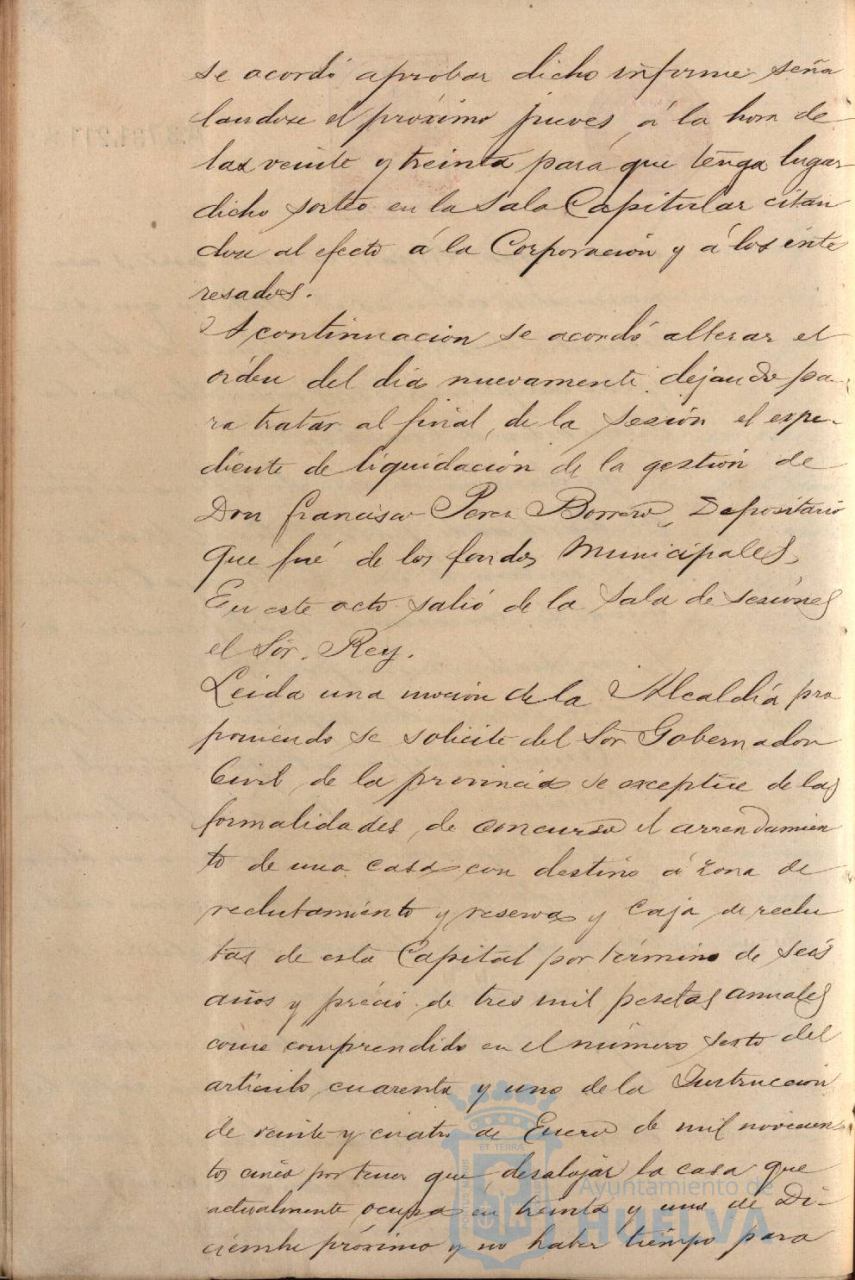 se acordó aprobar dicho informe seña
landose el próximo jueves, á la hora de
las veinte y treinta para que tenga lugar
dicho sorteo en la Sala Capitular citan
dose al efecto á la Corporación y á los inte
resados.
A continuacion se acordó alterar el
órden del dia nuevamente dejando pa-
ra tratar al final de la sesión el expe-
diente de liquidación de la gestión de
Don Francisco Perez Borrero, Depositario
que fué de los fondos Municipales.
En este acto salió de la Sala de sesiónes
el Sór. Rey.
Leida una moción de la Alcaldía pro
poniendo se solicite del Sor Gobernador
Civil de la provincia se exceptue de las
formalidades de concurso el arrendamien
to de una casa con destino á Zona de
reclutamiento y reserva y Caja de reclu
tas de esta Capital por término de seis
años y précio de tres mil pesetas anuales
como comprendido en el número sesto del
artículo cuarenta y uno de la Instruccion
de veinte y cuatro de Enero de mil novecien
tos cinco por tener que desalojar la casa que
actualmente ocupa en treinta y uno de Di-
ciembre próximo y no haber tiempo para
ET TERRA
Ayuntamiento de
HUELVA